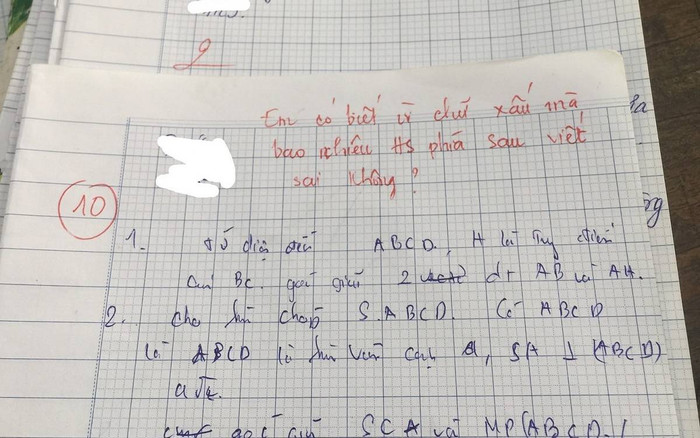 9
Em có biết vì chữ xấu mà
bao nhiêu HS phía sau viết
sai không?
10
1. tứ diện đều ABCD, H là Trung điểm
BC. góc giữa 2 đt AB và AH.
2. Cho hình chóp S.ABCD. Có ABCD
là ABCD là hình vuông cạnh a, SA ⊥ (ABCD)
góc giữa SCA và MP(ABCD)